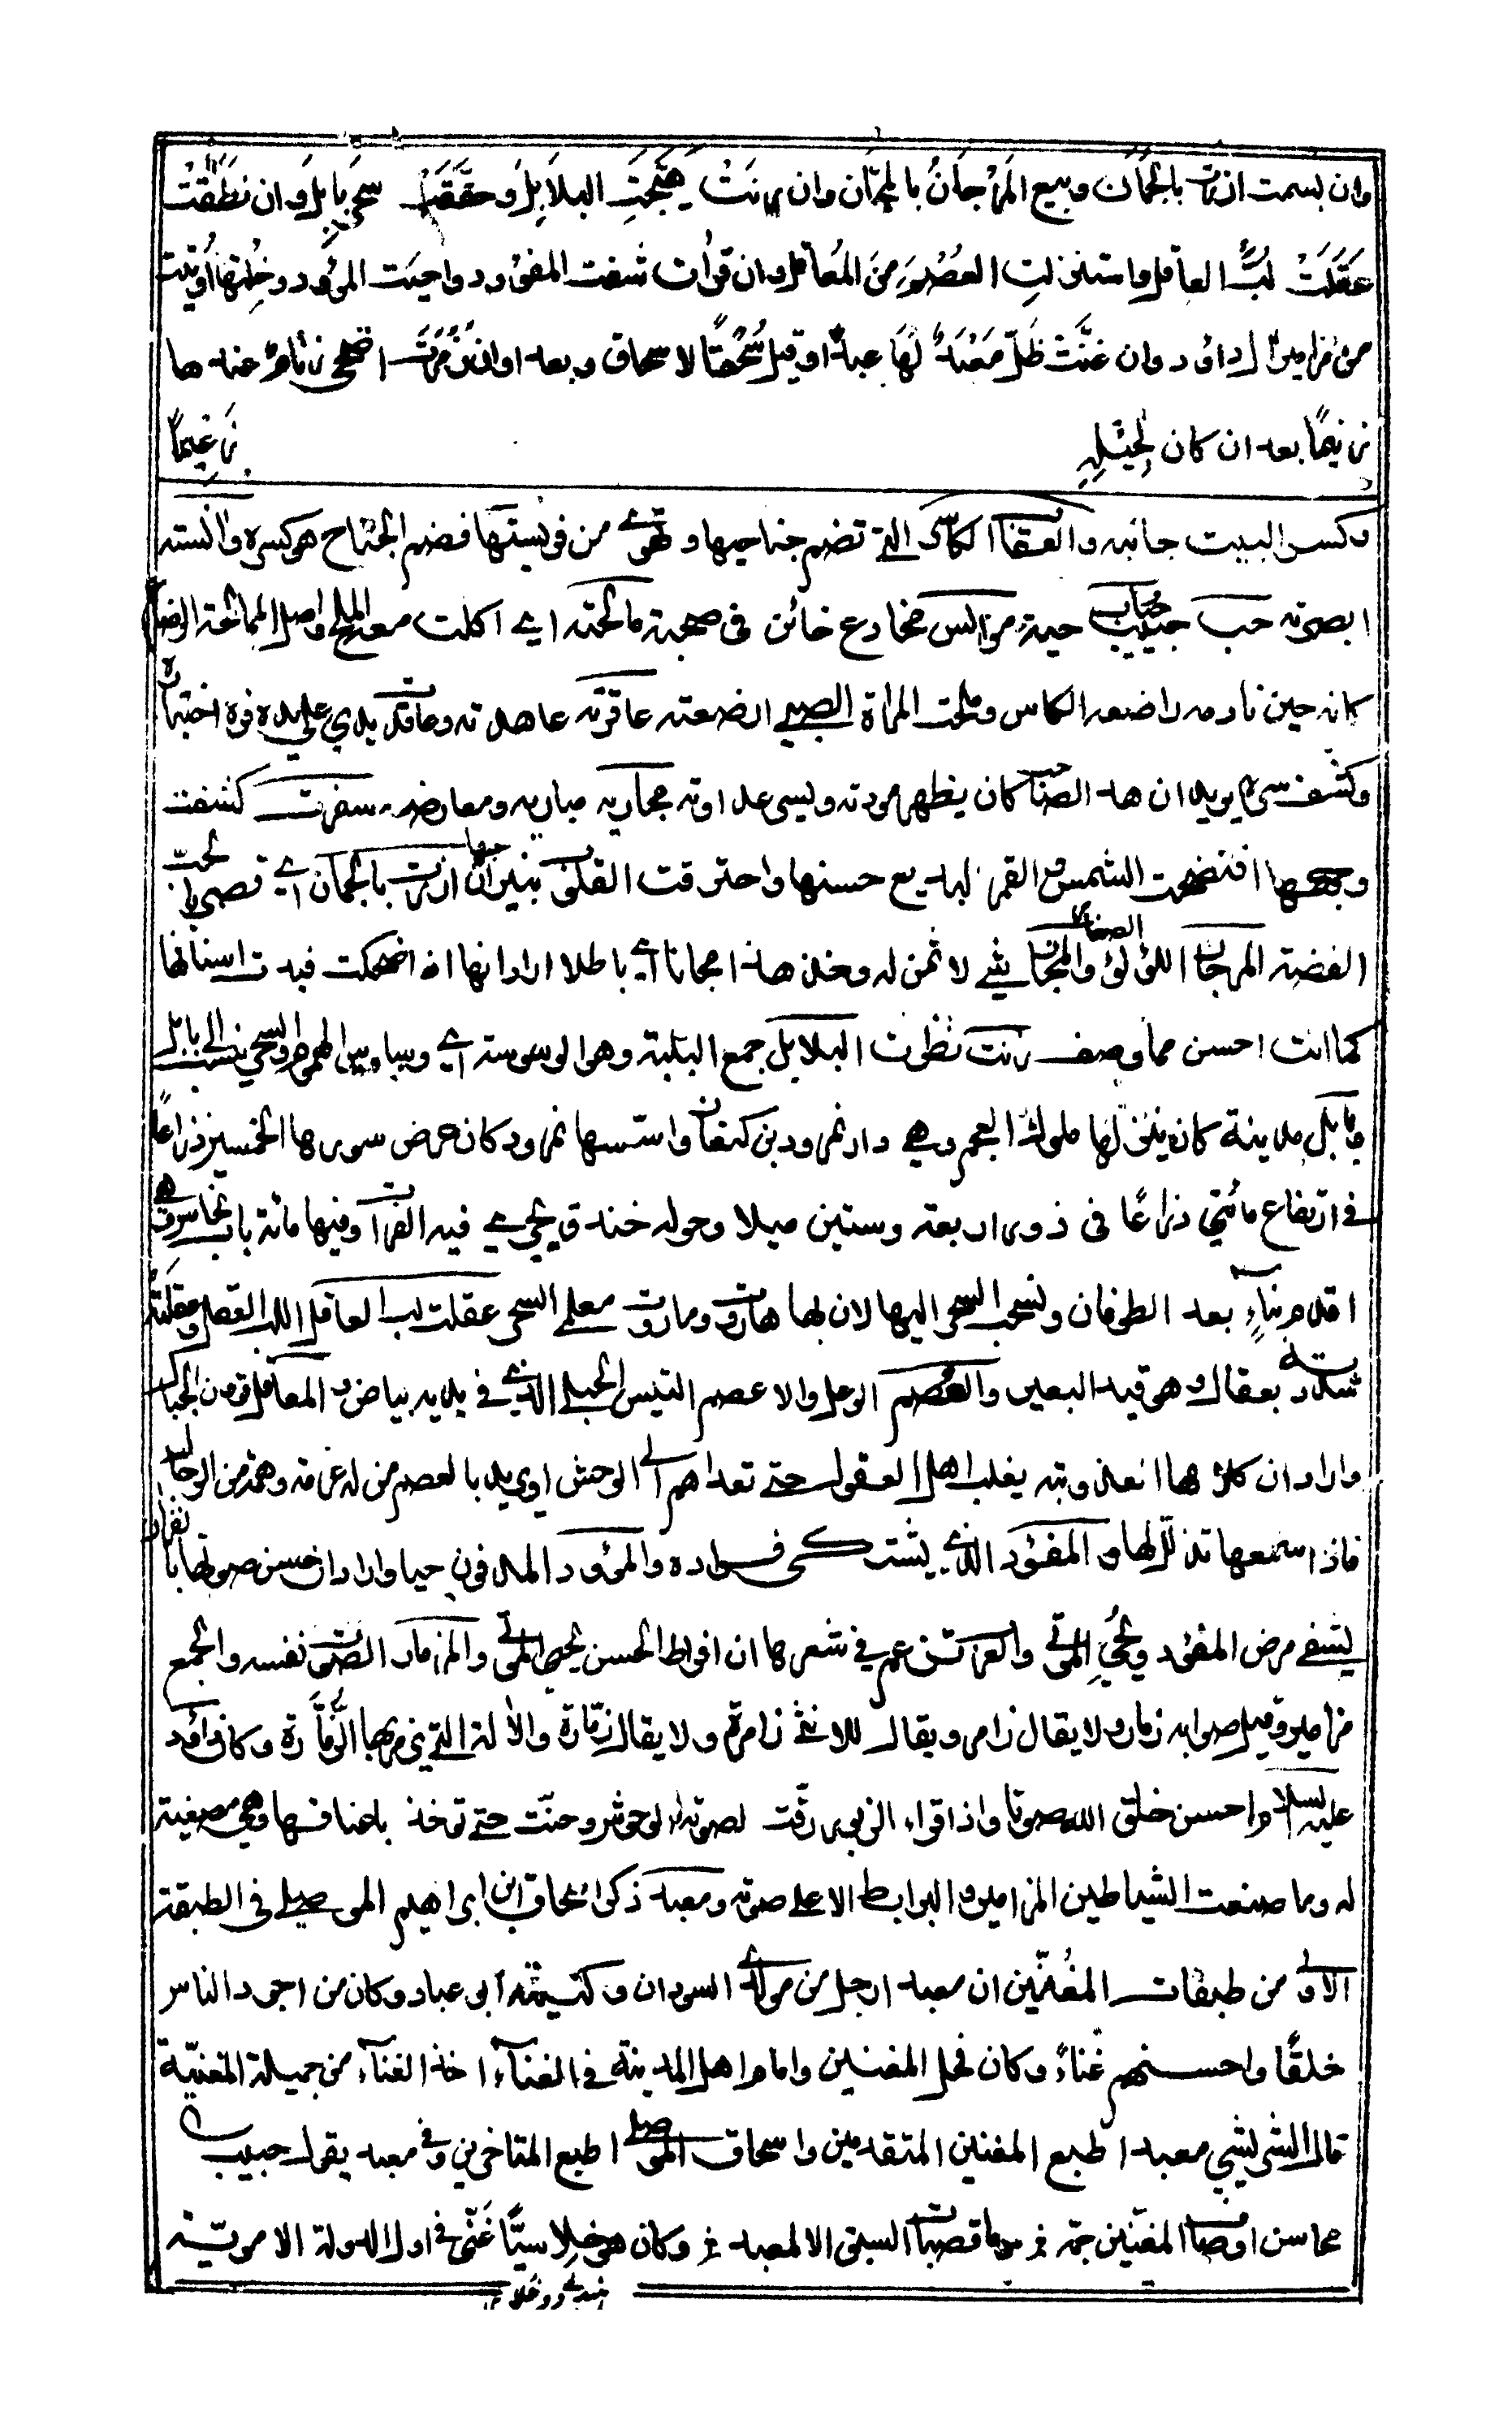 وان بسمت ازرت بالجُمَان وبيع المَرْجَانُ بالمجّان وان رنَتْ هيّجَتِ البلَابِلَ وحقّقَتْ سحرَ بابلَ وان نطَقَتْ
عَقَلَتْ لُبَّ العاقل واستنزلتِ العُصْمَ مِنَ المَعاقل وان قرأت شفت المفؤود واحيَت الموؤد وخِلتَها أُوتيت
من مزامير آل داؤد وان غنَّتْ ظَلّ مَعْبَدٌ لهَا عبدًا وقيل سُحْقًا لاسحاق وبعدا وان زمَرَتْ اضحى زنامٌ عندها
زنيمًا بعد ان كان لِجِيْلِهِ زعيمًا
وكسر البيت جانبه والعقاب الكاسر التي تضم جناحيها وتهوي من فريستها فضم الجناح هو كسره وآنسته
ابصرته حب حباب حية موالس مخادع خائن في صحبة مالحته اي اكلت معه الملح واصل الممالحة الرضاع
كانه حين نادمه راضعه الكاس وملحت المراة الصبي ارضعته عاقرته عاهدته وعاقدت يدي على يده فره اختباره
وكشف سره يريد ان هذا الصاحب كان يظهر مودته ويسر عداوته مجاريه مباريه ومعارضه سفرت كشفت
وجهها افتضحت الشمس والقمر لبديع حسنها واحترقت القلوب بنيران حبها ازرت بالجمان اي قصرت بحب
الفضة المرجان اللؤلؤ الصغار والمجان شيء لا ثمن له وخذ هذا مجانا اي باطلا اراد انها اذا ضحكت فبدت اسنانها
كما انت احسن مما وصف رنت نظرت البلابل جمع البلبة وهو الوسوسة اي وساوس الهم والسحر ينسب الى بابل
وبابل مدينة كان ينزلها ملوك العجم وهي دار نمرود بن كنعان واسسها نمرود كان عرض سورها الخمسين ذراعا
في ارتفاع مأتي ذراعًا في دور اربعة وستين ميلا وحوله خندق يجري فيه الفرات وفيها مائة باب نحاس وهي
اقدم بناءٍ بعد الطوفان ونسب السحر اليها لان بها هاروت وماروت معلمي السحر عقلت لب العاقل اللب العقل وعقلته
شددته بعقال وهو قيد البعير والعصم الوعل والاعصم التيس الجبلي الذي في يديه بياض والمعاقل قرون الجبال
واراد ان كلامها لعذوبته يغلب اهل العقول حتى تعداهم الى الوحش او يريد بالعصم من له عزمة وهمة من الرجال
فاذا سمعها تذلل لها والمفؤد الذي يشتكى فواده والموؤد المدفون حيا واراد ان حسن صوتها بالقرآن
يشفي مرض المفؤد ويحيي الموتى والعرب تزعم في شعرها ان افراط الحسن يحيي الموتى والمزمار الصوت نفسه والجمع
مزامير وقيل صوابه زمار ولا يقال زامر ويقال للانثى زامرة ولا يقال زمّارة والآلة التي يزمر بها الزمَّارة وكان داؤد
عليه السلام احسن خلق الله صوتا واذا قراء الزبور رقت لصوته الوحوش وحنّت حتى توخذ باعناقها وهي مصغية
له وما صنعت الشياطين المزامير والبرابط الا على صوته ومعبد ذكر اسحاق ابن ابراهيم الموصلي في الطبقة
الاولى من طبقات المغنّين ان معبدا رجل من موالي السودان وكنيته ابي عباد وكان من اجود الناس
خلقًا واحسنهم غناءً وكان فحل المغنين وامام اهل المدينة في الغناء اخذ الغناء من جميلة المغنيّة
قال الشريشي معبد اطبع المغنين المتقدمين واسحاق الموصلي اطبع المتاخرين وفي معبد يقول حبيب
محاسن اوصاف المغنّين جمّة وما قصبات السبق الا لمعبد وكان هو خلاسيًّا غنّى في اول الدولة الامويّة